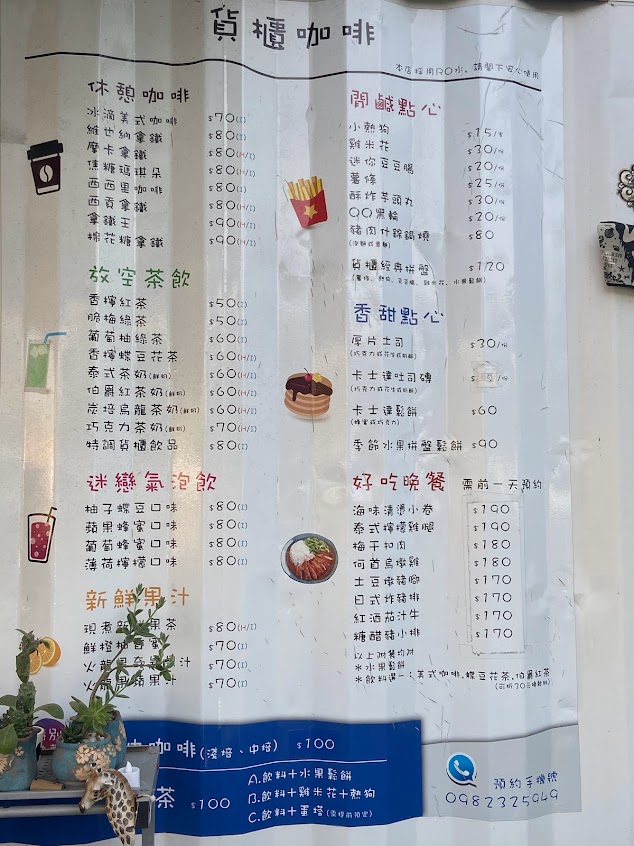 貨櫃咖啡
本店採用RO水,請閣下安心使用
休憩咖啡
冰滴美式咖啡 $70(I)
維也納拿鐵 $80(I)
摩卡拿鐵 $80(H/I)
焦糖瑪琪朵 $80(H/I)
西西里咖啡 $80(I)
西貢拿鐵 $80(H/I)
拿鐵王 $90(H/I)
棉花糖拿鐵 $90(H/I)
放空茶飲
香檸紅茶 $50(I)
脆梅綠茶 $50(I)
葡萄柚綠茶 $60(I)
香檸蝶豆花茶 $60(H/I)
泰式茶奶(鮮奶) $60(H/I)
伯爵紅茶奶(鮮奶) $60(H/I)
炭焙烏龍茶奶(鮮奶) $60(H/I)
巧克力茶奶(鮮奶) $70(H/I)
特調貨櫃飲品 $80(I)
迷戀氣泡飲
柚子蝶豆口味 $80(I)
蘋果蜂蜜口味 $80(I)
葡萄蜂蜜口味 $80(I)
薄荷檸檬口味 $80(I)
新鮮果汁
現煮新鮮果茶 $80(H/I)
鮮橙柚香蜜 $70(I)
火龍果奇果汁 $70(I)
火龍果蘋果汁 $70(I)
開鹹點心
小熱狗 $15/串
雞米花 $30/份
迷你豆豆腸 $20/份
薯條 $25/份
酥炸芋頭丸 $30/份
QQ黑輪 $20/份
豬肉什錦鍋燒 $80
貨櫃經典拼盤 $120
香甜點心
厚片土司 $30/份
(巧克力或花生或奶酥)
卡士達吐司磚
(巧克力或花生或奶酥)
卡士達鬆餅 $60
(蜂蜜或巧克力)
季節水果拼盤鬆餅 $90
好吃晚餐 需前一天預約
海味清燙小卷 $190
泰式檸檬雞腿 $190
梅干扣肉 $180
何首烏燉雞 $180
土豆燉豬腳 $170
日式炸豬排 $170
紅酒茄汁牛 $170
糖醋豬小排 $170
以上附餐均附
*水果鬆餅
*飲料選一:美式咖啡.蝶豆花茶.伯爵紅茶
(可折30元換飲料)
咖啡(淺焙、中焙) $100
茶 $100
A.飲料+水果鬆餅
B.飲料+雞米花+熱狗
C.飲料+蛋塔(需提前預定)
預約手機號
0982325949